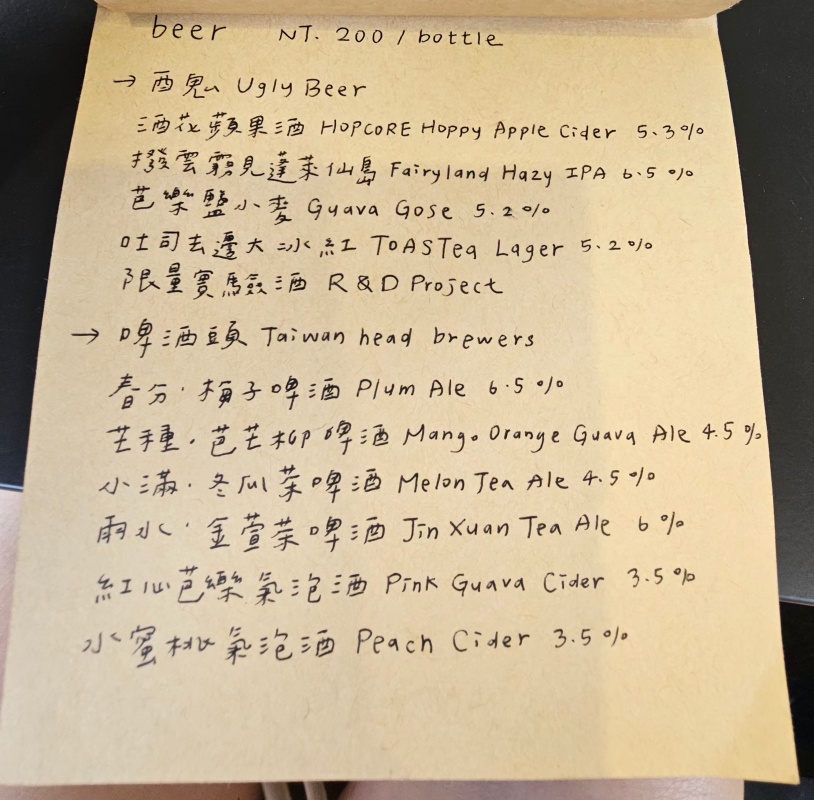 beer NT. 200 / bottle
→ 酉鬼 Ugly Beer
酒花蘋果酒 HOPCORE Hoppy Apple Cider 5.3%
撥雲霧見蓬萊仙島 Fairyland Hazy IPA 6.5 %
芭樂鹽小麥 Guava Gose 5.2%
吐司去邊大冰紅 TOASTea Lager 5.2%
限量實驗酒 R & D Project
→ 啤酒頭 Taiwan head brewers
春分·梅子啤酒 Plum Ale 6.5 %
芒種·芭芒柳啤酒 Mango Orange Guava Ale 4.5 %
小滿·冬瓜茶啤酒 Melon Tea Ale 4.5 %
雨水·金萱茶啤酒 Jin Xuan Tea Ale 6 %
紅心芭樂氣泡酒 Pink Guava Cider 3.5%
水蜜桃氣泡酒 Peach Cider 3.5%